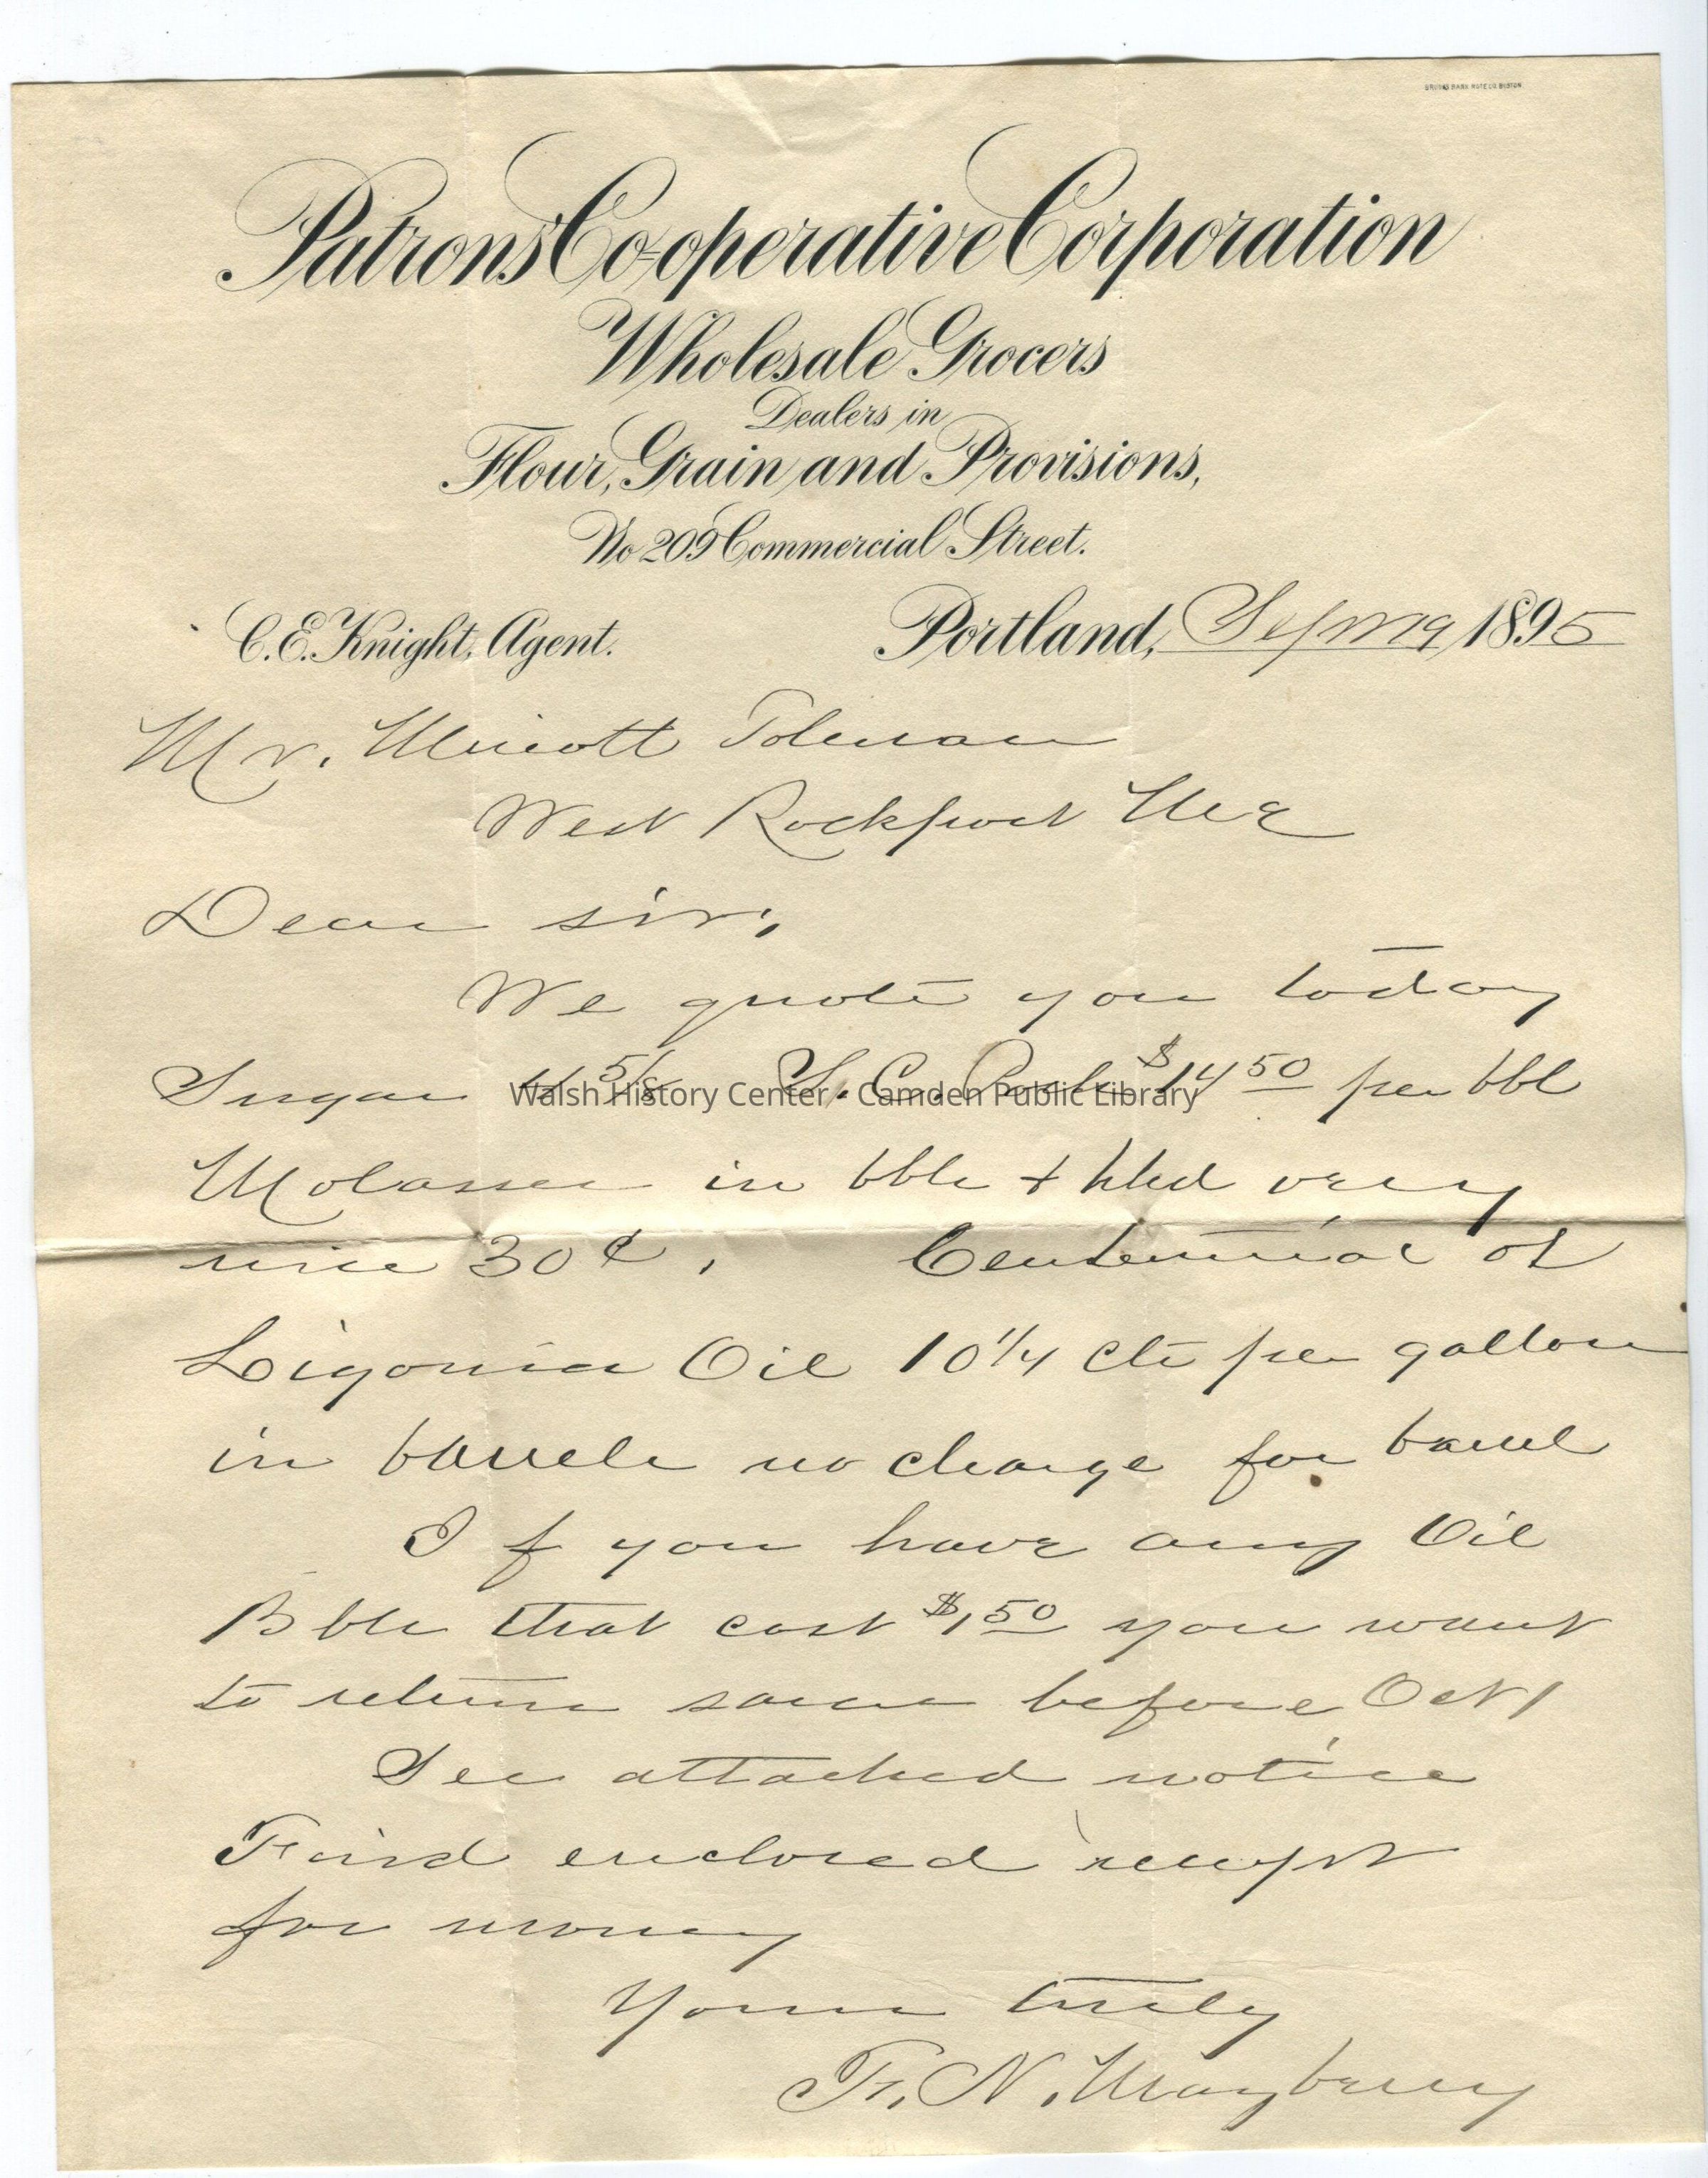 Patrons' Co-operative Corporation
Wholesale Grocers
Dealers in
Flour, Grain and Provisions,
No 209 Commercial Street.
C.E. Knight, Agent. Portland, 1895
Mr. Tolman
West Rockport Me
Dear sir,
We quote you today
Sugar 4 5/8 S. C. Pork $14 50 per bbl
Walsh History Center - Camden Public Library
Molasses in bbls + hhd very
nice 30¢. Centennial or
Ligonia Oil 10 1/4 cts per gallon
in barrels no charge for barrel
If you have any Oil
Bbls that cost $1 50 you want
to return same before Oct 1
See attached notice
Find enclosed receipt
for money
Yours truly
F. N. Mayberry